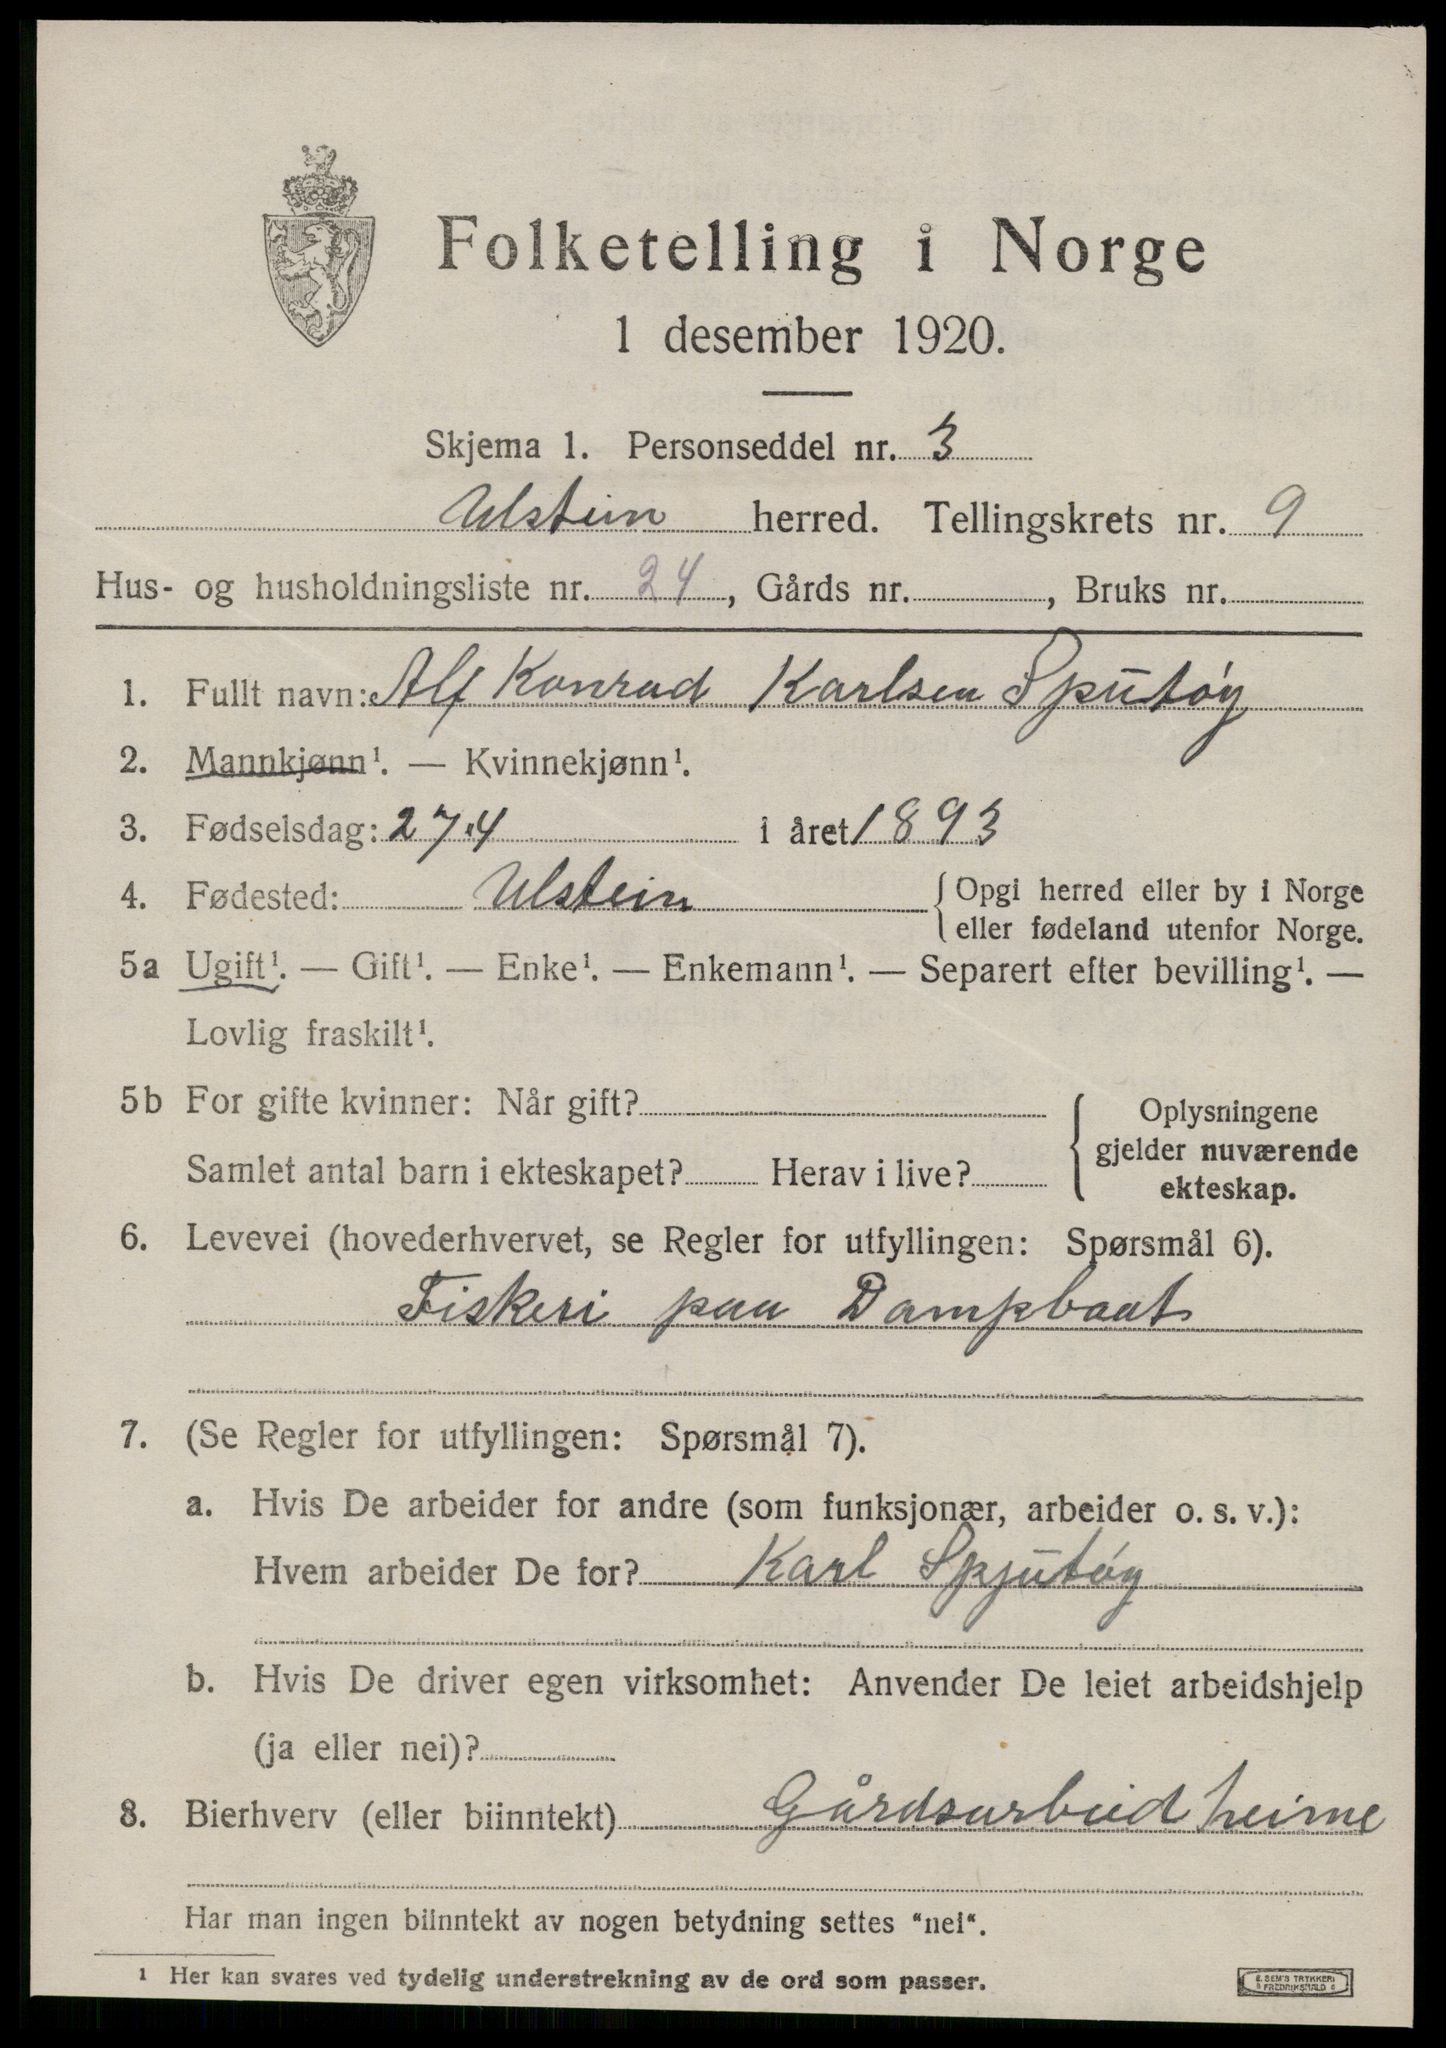 Folketelling i Norge
1 desember 1920.
Skjema 1. Personseddel nr. 3
Ulstein herred. Tellingskrets nr. 9
Hus- og husholdningsliste nr. 24, Gårds nr. , Bruks nr.
1. Fullt navn: Alf Konrad Karlsen Sputøy
2. Mannkjønn¹. — Kvinnekjønn¹.
3. Fødselsdag: 27.4 i året 1893
4. Fødested: Ulstein { Opgi herred eller by i Norge
eller fødeland utenfor Norge.
5a Ugift¹. — Gift¹. — Enke¹. — Enkemann¹. — Separert efter bevilling¹. —
Lovlig fraskilt¹.
5b For gifte kvinner: Når gift? Oplysningene
gjelder nuværende
Samlet antal barn i ekteskapet? Herav i live? ekteskap.
6. Levevei (hovederhvervet, se Regler for utfyllingen: Spørsmål 6).
Fiskeri paa Dampbaat
7. (Se Regler for utfyllingen: Spørsmål 7).
a. Hvis De arbeider for andre (som funksjonær, arbeider o. s. v.):
Hvem arbeider De for? Karl Spjutøy
b. Hvis De driver egen virksomhet: Anvender De leiet arbeidshjelp
(ja eller nei)?
8. Bierhverv (eller biinntekt) Gårdsarbeid heime
Har man ingen biinntekt av nogen betydning settes "nei".
¹ Her kan svares ved tydelig understrekning av de ord som passer.
E. SEM'S TRYKKERI
FREDRIKSHALD